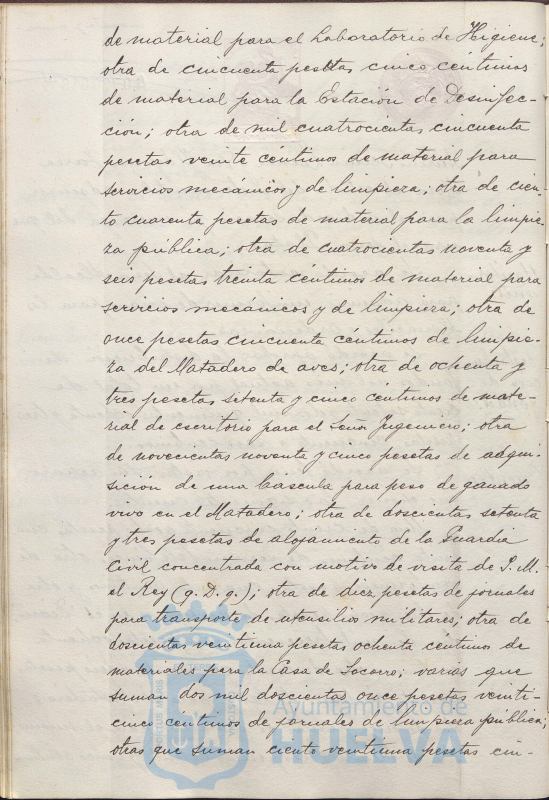 de material para el Laboratorio de Higiene;
otra de cincuenta pesetas cinco centimos
de material para la Estación de Desinfec-
ción; otra de mil cuatrocientas cincuenta
pesetas veinte céntimos de material para
servicios mecánicos y de limpieza; otra de cien-
to cuarenta pesetas de material para la limpie-
za pública; otra de cuatrocientas noventa y
seis pesetas treinta céntimos de material para
servicios mecánicos y de limpieza; otra de
once pesetas cincuenta céntimos de limpie-
za del Matadero de aves; otra de ochenta y
tres pesetas setenta y cinco céntimos de mate-
rial de escritorio para el Señor Ingeniero; otra
de novecientas noventa y cinco pesetas de adqui-
sición de una báscula para peso de ganado
vivo en el Matadero; otra de doscientas setenta
y tres pesetas de alojamiento de la Guardia
Civil concentrada con motivo de visita de S. M.
el Rey (q. D. g.); otra de diez pesetas de jornales
para transporte de utensilios militares; otra de
doscientas veintiuna pesetas ochenta centimos de
materiales para la Casa de Socorro; varias que
suman dos mil doscientas once pesetas veinti-
cinco céntimos de jornales de limpieza pública;
otras que suman ciento veintiuna pesetas cin-
Ayuntamiento de
HUELVA